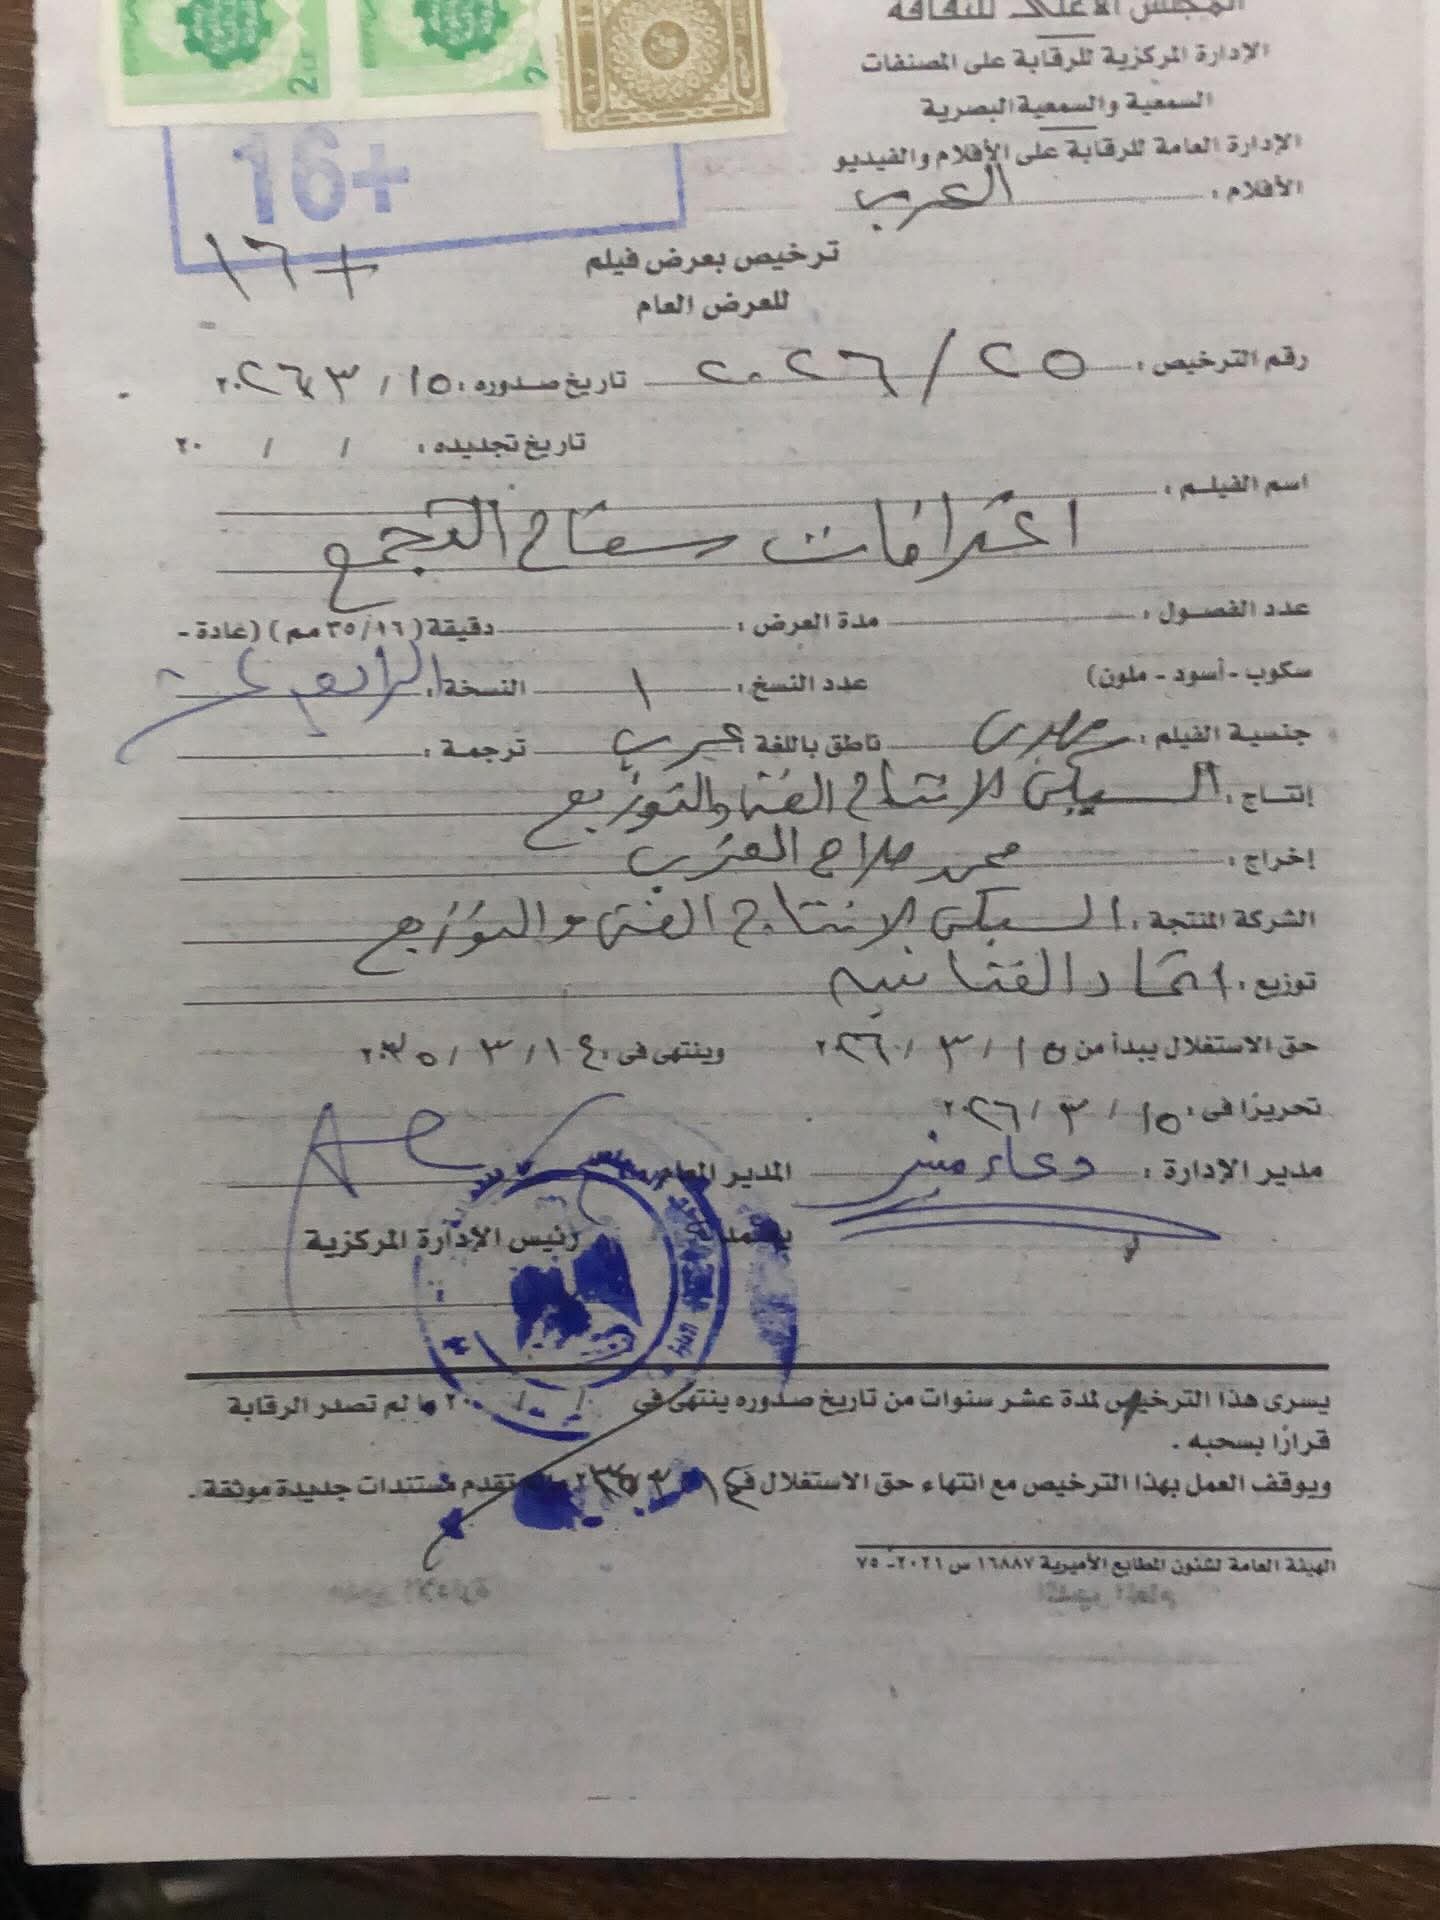 المجلس الأعلى للثقافة
الإدارة المركزية للرقابة على المصنفات
السمعية والسمعية البصرية
الإدارة العامة للرقابة على الأفلام والفيديو
الأفلام : العربى
16+
+١٦
ترخيص بعرض فيلم
للعرض العام
رقم الترخيص : ٢٥ / ٢٠٢٦ تاريخ صدوره : ١٥ / ٣ / ٢٠٢٦
تاريخ تجديده : / / ٢٠
اسم الفيلم :
اعترافات سفاح التجمع
عدد الفصول : مدة العرض : دقيقة (٣٥/١٦ مم) (عادة -
سكوب - أسود - ملون) عدد النسخ : ١ النسخة :
جنسية الفيلم : مصرى ناطق باللغة : عربى ترجمة :
إنتاج : السبكى للانتاج الفنى والتوزيع
إخراج : محمد صلاح العزب
الشركة المنتجة : السبكى للانتاج الفنى والتوزيع
توزيع : اتحاد الفنانين
حق الاستغلال يبدأ من ١٥ / ٣ / ٢٠٢٦ وينتهى فى ١٤ / ٣ / ٢٠٣٥
تحريرًا فى : ١٥ / ٣ / ٢٠٢٦
مدير الإدارة : دعاء منير المدير العام
يعتمد
رئيس الإدارة المركزية
يسرى هذا الترخيص لمدة عشر سنوات من تاريخ صدوره ينتهى فى / / ٢٠ ما لم تصدر الرقابة
قرارًا بسحبه .
ويوقف العمل بهذا الترخيص مع انتهاء حق الاستغلال فى ١٤ / ٣ / ٢٠٣٥ تقدم مستندات جديدة موثقة .
الهيئة العامة لشئون المطابع الأميرية ١٦٨٨٧ س ٢٠٢١ - ٧٥